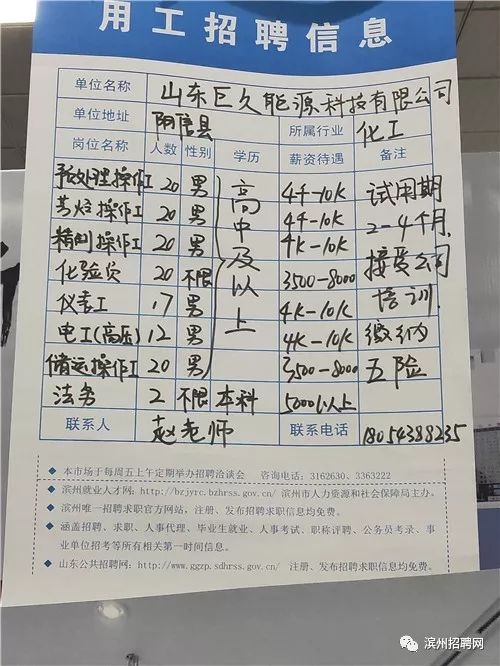 用工招聘信息
单位名称 山东巨久能源科技有限公司
单位地址 阳信县 所属行业 化工
岗位名称 人数 性别 学历 薪资待遇 备注
预处理操作工 20 男 高中及以上 4千-10K 试用期
芳烃操作工 20 男 4千-10K 2-4个月
精制操作工 20 男 4K-10K 接受公司
化验员 20 不限 3500-8000 培训
仪表工 17 男 4K-10K 缴纳
电工(高压) 12 男 4K-10K 五险
储运操作工 20 男 3500-8000
法务 2 不限 本科 5000以上
联系人 赵老师 联系电话 18054388235
◆ 本市场于每周五上午定期举办招聘洽谈会 咨询电话：3162630、3363222
◆ 滨州就业人才网：http://bzjyrc.bzhrss.gov.cn/ 滨州市人力资源和社会保障局主办。
◆ 滨州唯一招聘求职官方网站，注册、发布招聘求职信息均免费。
◆ 涵盖招聘、求职、人事代理、毕业生就业、人事考试、职称评聘、公务员考录、事
业单位招考等所有相关第一时间信息。
◆ 山东公共招聘网：http://www.ggzp.sdhrss.gov.cn/ 注册、发布招聘求职信息均免费。
滨州招聘网